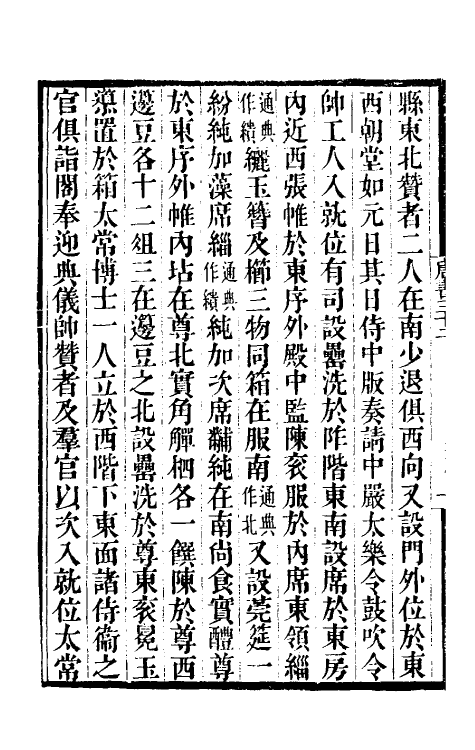 縣東北贊者二人在南少退俱西向又設門外位於東
西朝堂如元日其日侍中版奏請中嚴太樂令鼓吹令
帥工人入就位有司設罍洗於阼階東南設席於東房
內近西張帷於東序外殿中監陳衮服於內席東領緇
通典作繢纚玉簪及櫛三物同箱在服南通典作北又設莞筵一
紛純加藻席緇通典作繢純加次席黼純在南尚食實醴尊
於東序外帷內坫在尊北實角觶柶各一饌陳於尊西
籩豆各十二俎三在籩豆之北設罍洗於尊東衮冕玉
導置於箱太常博士一人立於西階下東面諸侍衞之
官俱詣閤奉迎典儀帥贊者及羣官以次入就位太常